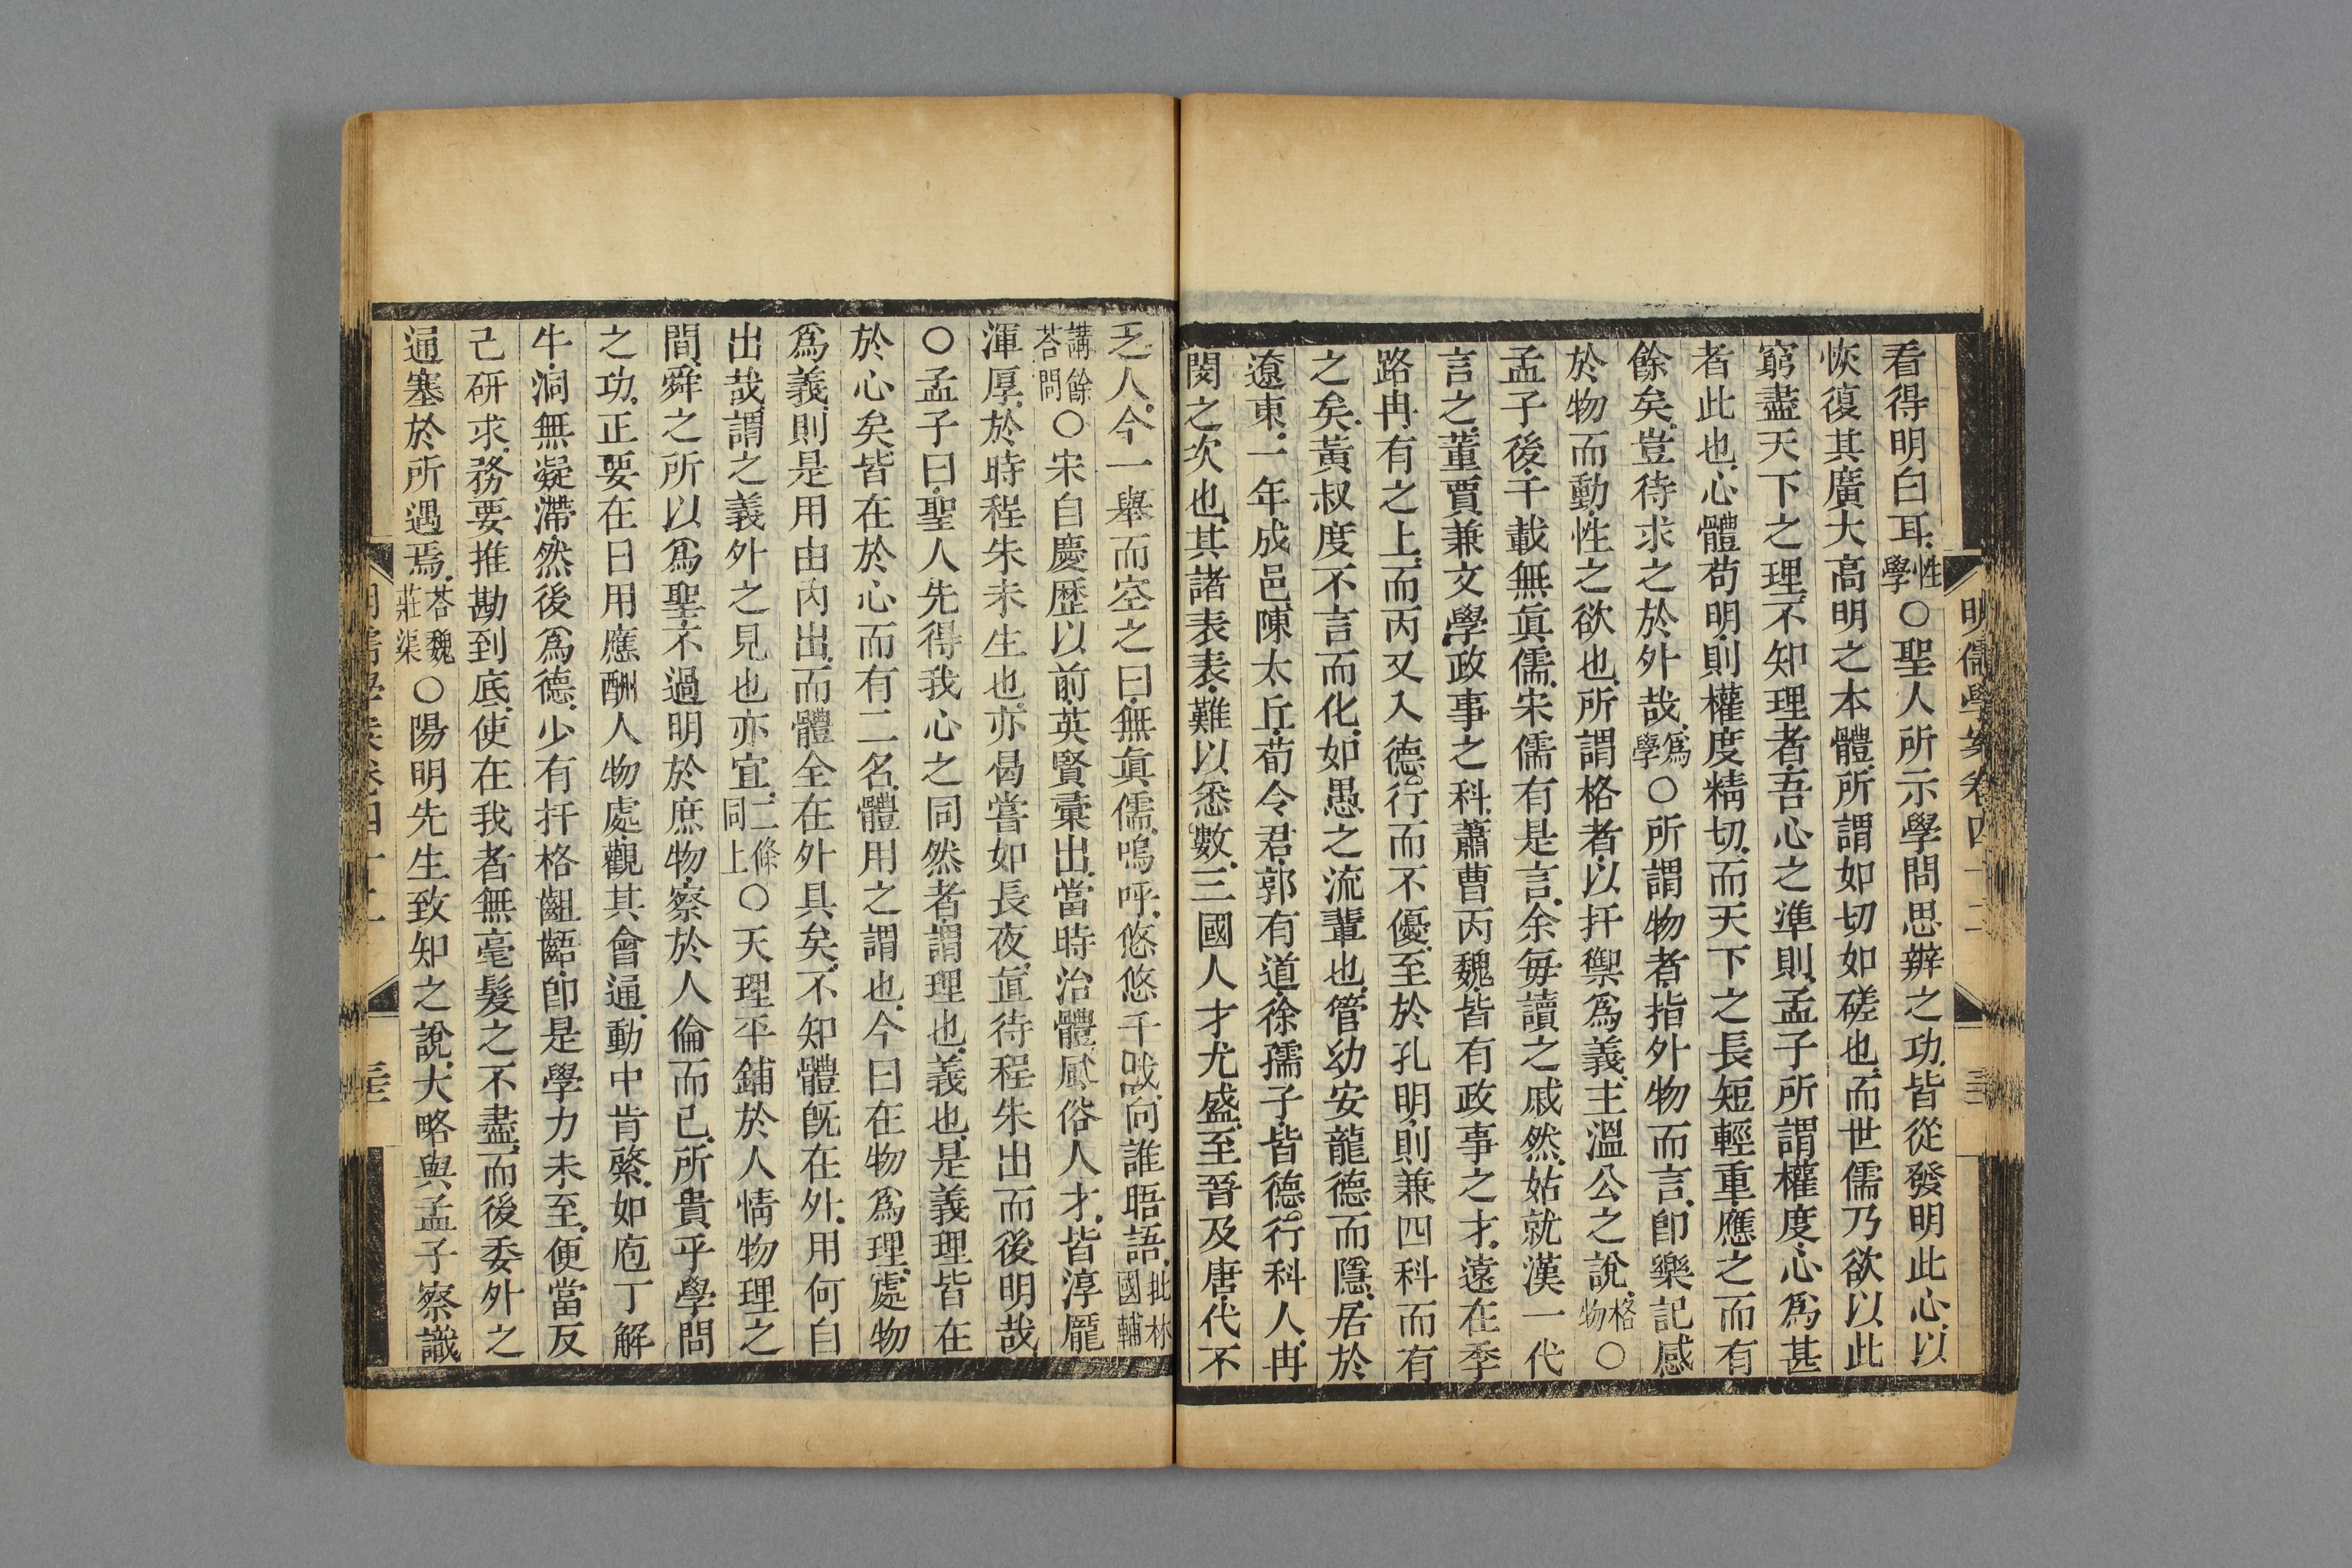 明儒學案卷四十二
看得明白耳性學○聖人所示學問思辨之功皆從發明此心以
恢復其廣大高明之本體所謂如切如磋也而世儒乃欲以此
窮盡天下之理不知理者吾心之準則孟子所謂權度心爲甚
者此也心體苟明則權度精切而天下之長短輕重應之而有
餘矣豈待求之於外哉爲學○所謂物者指外物而言卽樂記感
於物而動性之欲也所謂格者以扞禦爲義主溫公之說格物○
孟子後千載無眞儒宋儒有是言余每讀之戚然姑就漢一代
言之董賈兼文學政事之科蕭曹丙魏皆有政事之才遠在季
路冉有之上而丙又入德行而不優至於孔明則兼四科而有
之矣黃叔度不言而化如愚之流輩也管幼安龍德而隱居於
遼東一年成邑陳太丘荀令君郭有道徐孺子皆德行科人冉
閔之次也其諸表表難以悉數三國人才尤盛至晉及唐代不
乏人今一舉而空之曰無眞儒嗚呼悠悠千載向誰晤語批林國輔
講餘荅問○宋自慶歷以前英賢彙出當時治體風俗人才皆淳龎
渾厚於時程朱未生也亦曷嘗如長夜直待程朱出而後明哉
○孟子曰聖人先得我心之同然者謂理也義也是義理皆在
於心矣皆在於心而有二名體用之謂也今曰在物爲理處物
爲義則是用由內出而體全在外具矣不知體旣在外用何自
出哉謂之義外之見也亦宜二條同上○天理平鋪於人情物理之
間舜之所以爲聖不過明於庶物察於人倫而已所貴乎學問
之功正要在日用應酬人物處觀其會通動中肯綮如庖丁解
牛洞無凝滯然後爲德少有扞格齟齬卽是學力未至便當反
己研求務要推勘到底使在我者無毫髮之不盡而後委外之
通塞於所遇焉荅魏莊渠○陽明先生致知之說大略與孟子察識